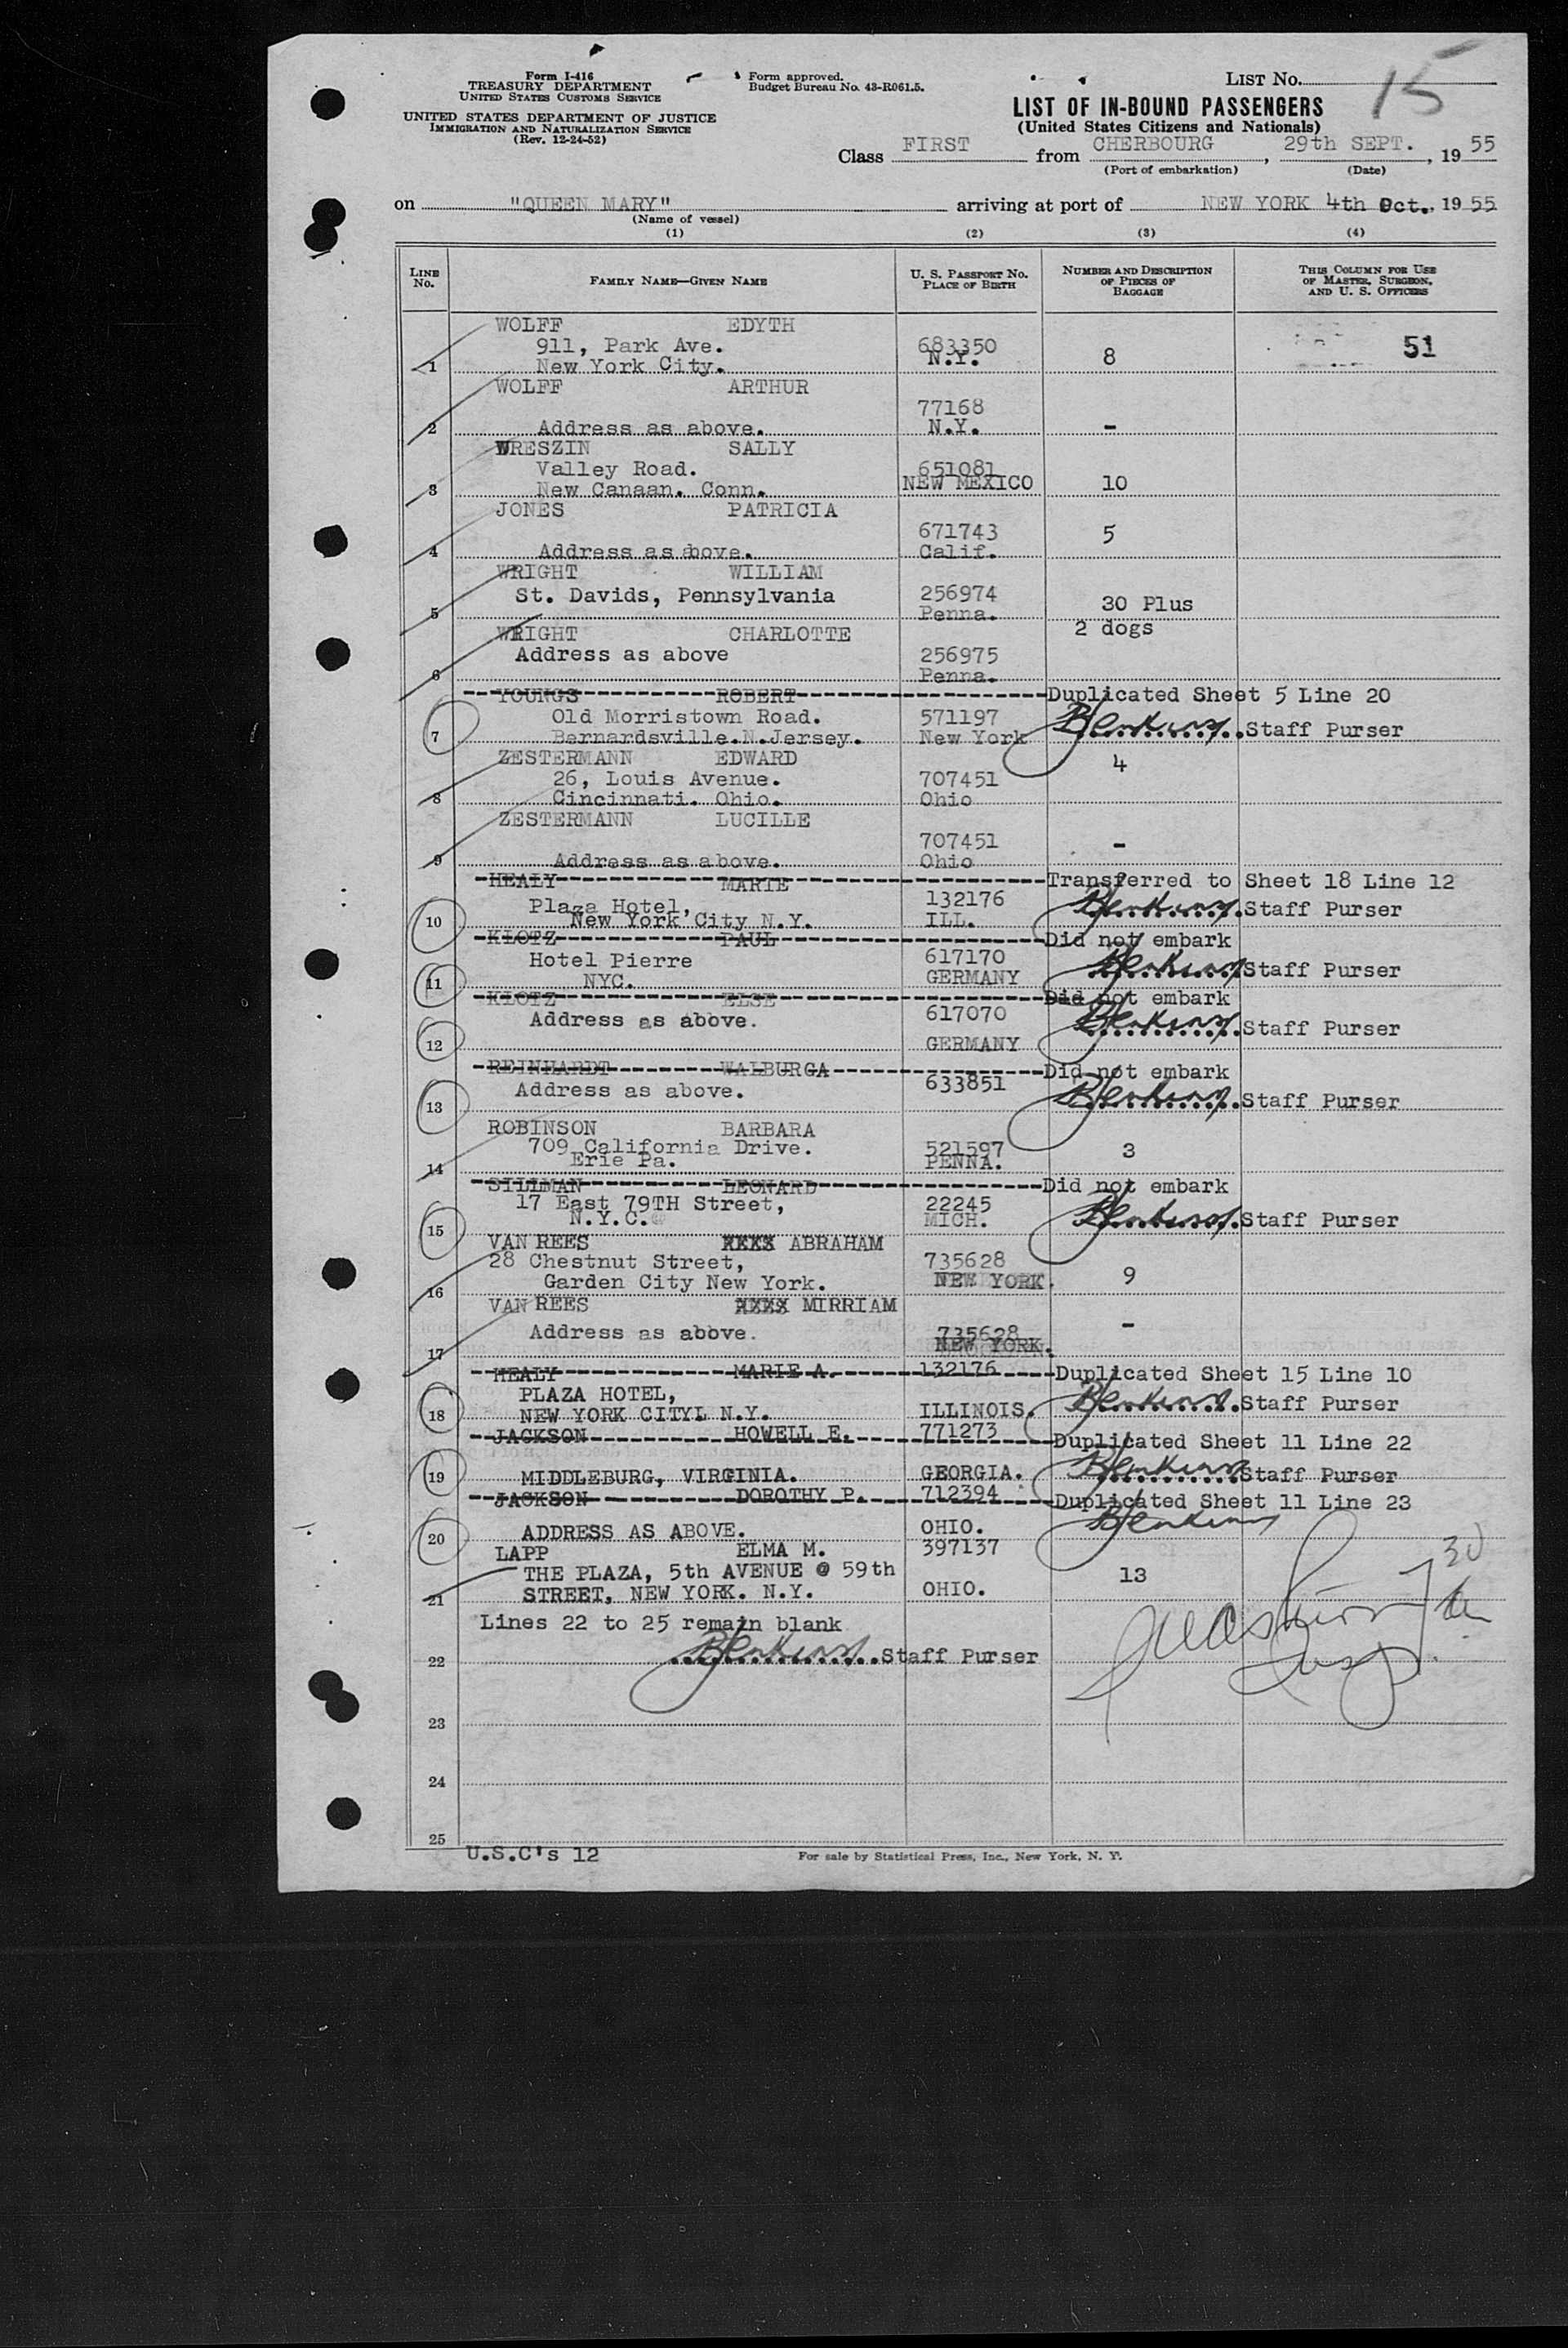 Form I-416
TREASURY DEPARTMENT
UNITED STATES CUSTOMS SERVICE
UNITED STATES DEPARTMENT OF JUSTICE
IMMIGRATION AND NATURALIZATION SERVICE
(Rev. 12-24-52)
Form approved.
Budget Bureau No. 43-R061.5.
LIST NO. 15
LIST OF IN-BOUND PASSENGERS
(United States Citizens and Nationals)
Class FIRST from CHERBOURG, 29th SEPT., 1955
(Port of embarkation) (Date)
on "QUEEN MARY" arriving at port of NEW YORK 4th Oct., 1955
(Name of vessel)
(1) (2) (3) (4)
LINE NO. FAMILY NAME—GIVEN NAME U. S. PASSPORT NO. PLACE OF BIRTH NUMBER AND DESCRIPTION OF PIECES OF BAGGAGE THIS COLUMN FOR USE OF MASTER, SURGEON, AND U. S. OFFICERS
WOLFF EDYTH
911, Park Ave. 683350 51
1 New York City. N.Y. 8
WOLFF ARTHUR
77168
2 Address as above. N.Y. -
WRESZIN SALLY
Valley Road. 651081
3 New Canaan. Conn. NEW MEXICO 10
JONES PATRICIA
671743 5
4 Address as above. Calif.
WRIGHT WILLIAM
St. Davids, Pennsylvania 256974 30 Plus
5 Penna. 2 dogs
WRIGHT CHARLOTTE
Address as above 256975
6 Penna.
YOUNGS ROBERT Duplicated Sheet 5 Line 20
Old Morristown Road. 571197
7 Bernardsville.N.Jersey. New York Staff Purser
ZESTERMANN EDWARD 4
26, Louis Avenue. 707451
8 Cincinnati. Ohio. Ohio
ZESTERMANN LUCILLE
707451 -
9 Address as above. Ohio
HEALY MARIE Transferred to Sheet 18 Line 12
Plaza Hotel, 132176 Staff Purser
10 New York City N.Y. ILL.
KLOTZ PAUL Did not embark
Hotel Pierre 617170 Staff Purser
11 NYC. GERMANY
KLOTZ ELSE Did not embark
Address as above. 617070 Staff Purser
12 GERMANY
REINHARDT WALBURGA Did not embark
Address as above. 633851 Staff Purser
13
ROBINSON BARBARA
709 California Drive. 521597 3
14 Erie Pa. PENNA.
SILLMAN LEONARD Did not embark
17 East 79TH Street, 22245
15 N.Y.C. MICH. Staff Purser
VAN REES XXXX ABRAHAM
28 Chestnut Street, 735628
16 Garden City New York. NEW YORK. 9
VAN REES XXXX MIRRIAM
Address as above. 735628 -
17 NEW YORK.
HEALY MARIE A. 132176 Duplicated Sheet 15 Line 10
PLAZA HOTEL, Staff Purser
18 NEW YORK CITYL N.Y. ILLINOIS.
JACKSON HOWELL E. 771273 Duplicated Sheet 11 Line 22
19 MIDDLEBURG, VIRGINIA. GEORGIA. Staff Purser
JACKSON DOROTHY P. 712394 Duplicated Sheet 11 Line 23
20 ADDRESS AS ABOVE. OHIO.
LAPP ELMA M. 397137 30
THE PLAZA, 5th AVENUE @ 59th 13
21 STREET, NEW YORK. N.Y. OHIO.
Lines 22 to 25 remain blank
22 Staff Purser
23
24
25
U.S.C's 12 For sale by Statistical Press, Inc., New York, N. Y.